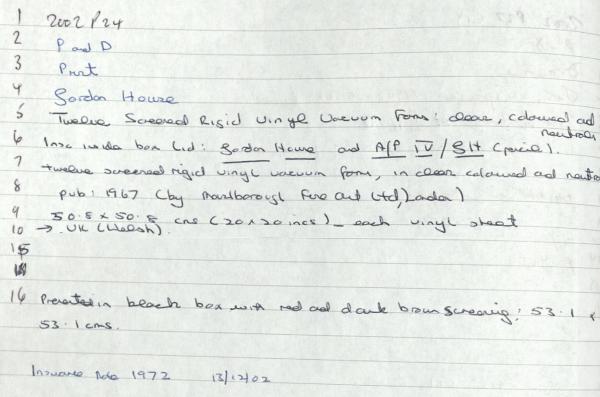 1 2002 P24
2 P and D
3 Print
4 Gordon House
5 Twelve Screened Rigid Vinyl Vacuum Forms: clear, coloured and neutrals
6 Insc inside box lid: Gordon House and A/P IV / GH (pencil).
7 twelve screened rigid vinyl vacuum forms, in clear coloured and neutral
8 pub: 1967 (by Marlborough Fine Art Ltd, London)
9 50.8 x 50.8 cms (20 x 20 incs) - each vinyl sheet
10 → UK (Welsh).
15
16 Presented in black box with red and dark brown screening: 53.1 x
53.1 cms.
Insurance 1972 13/12/02